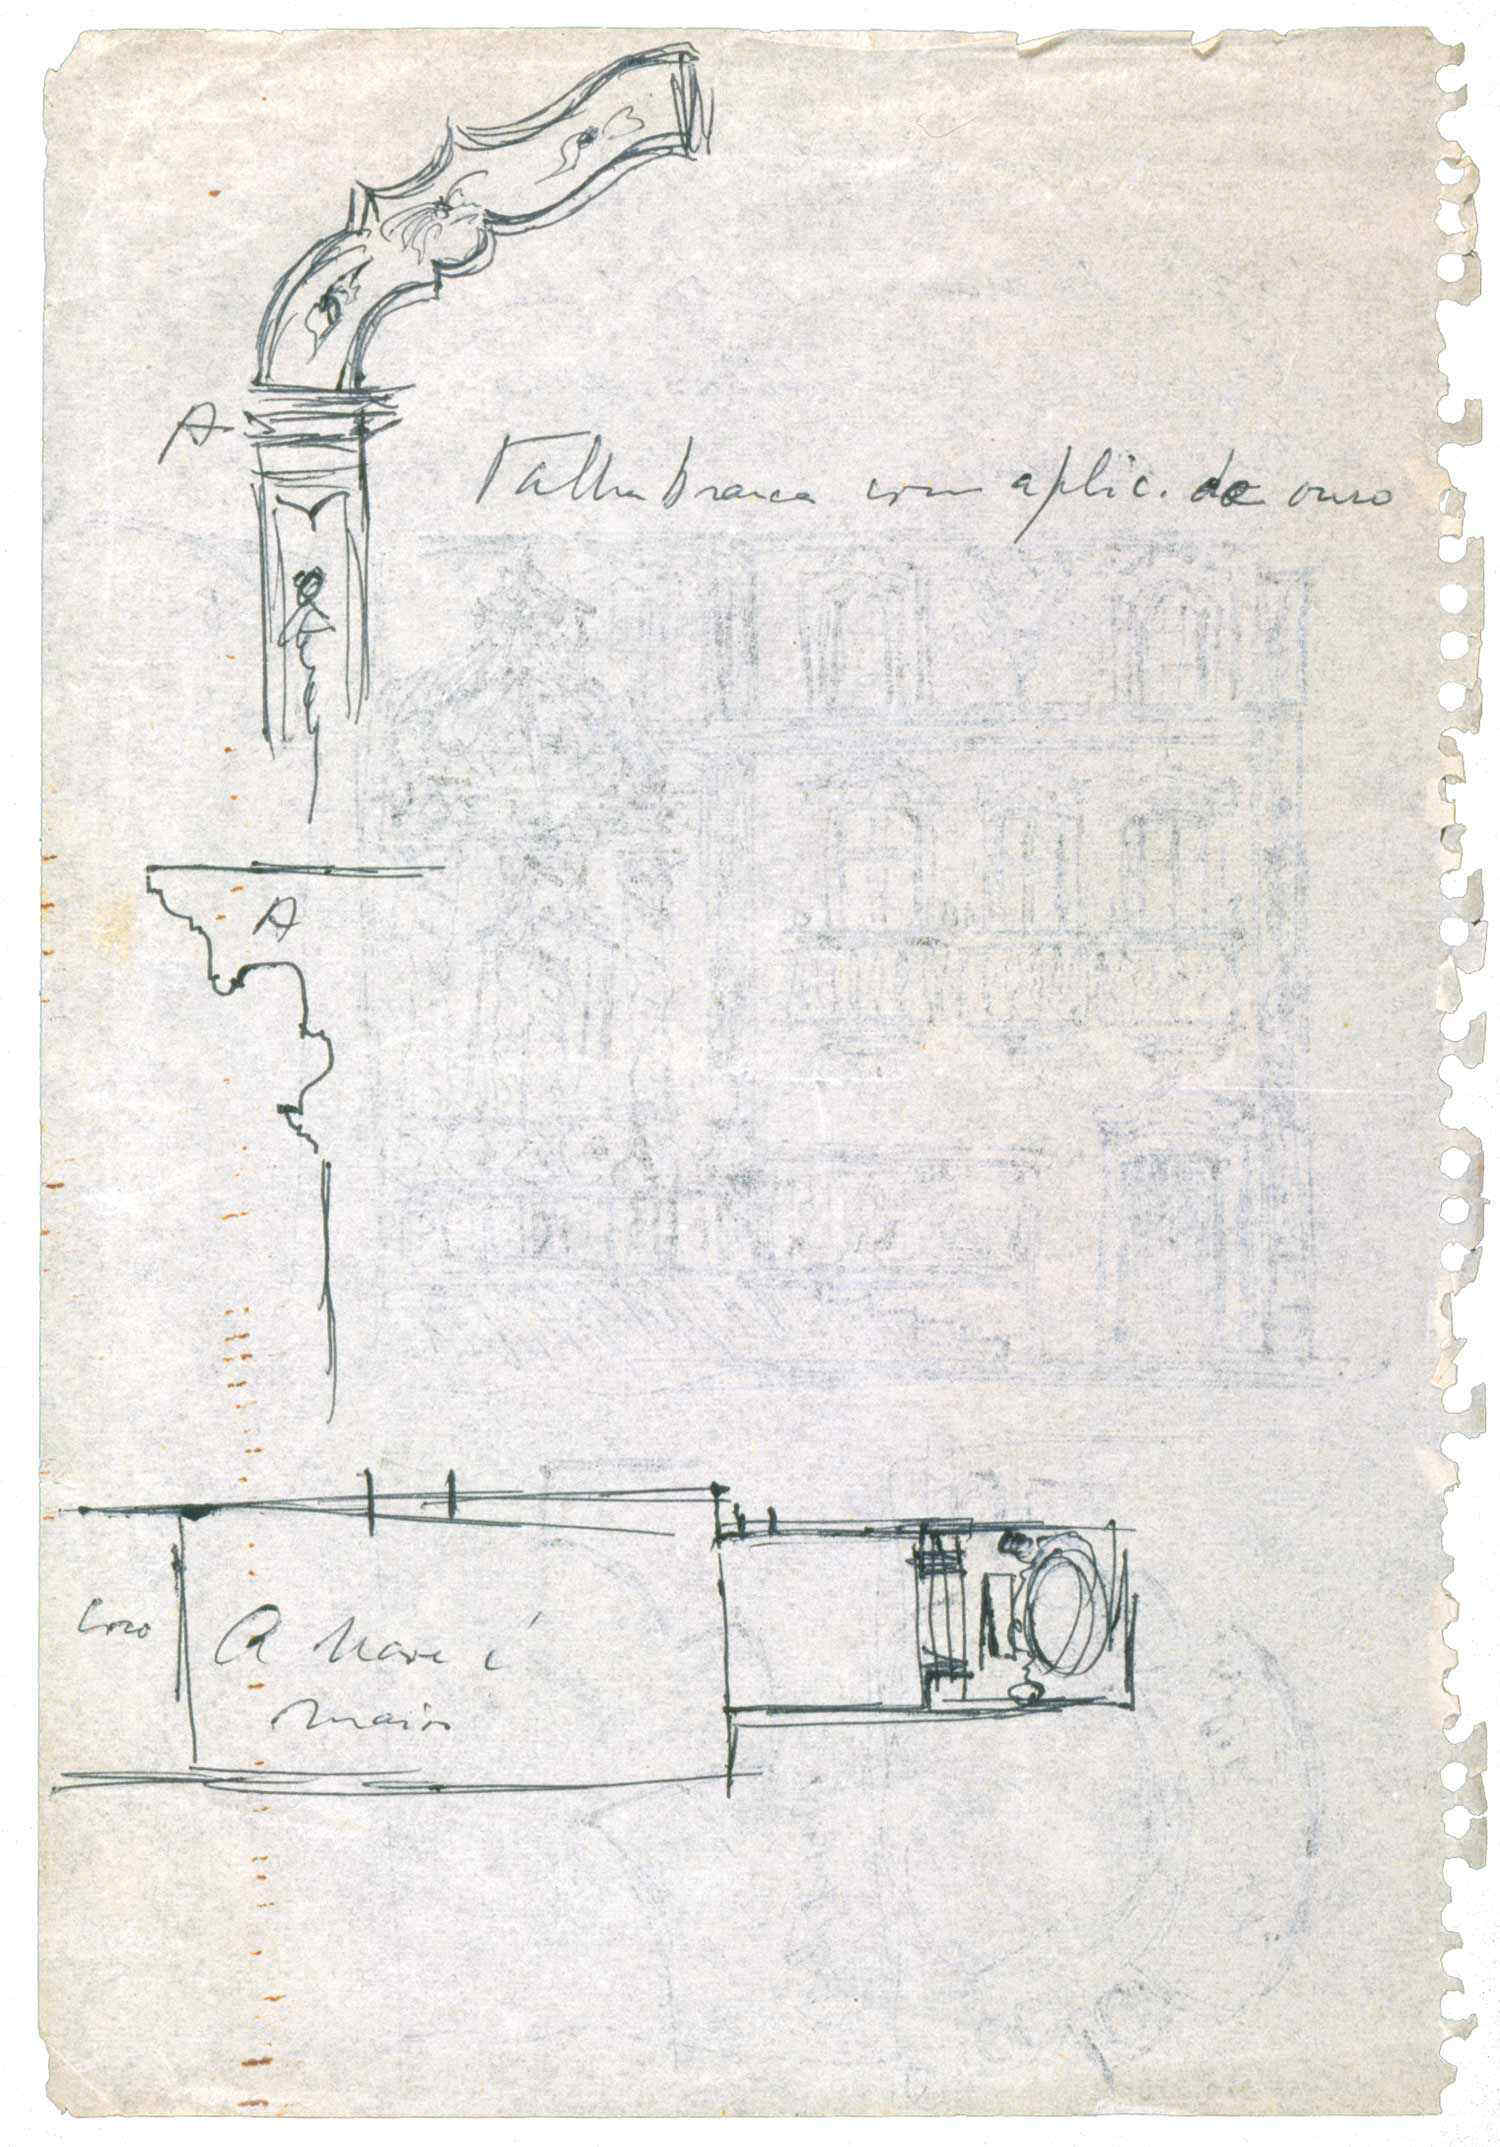 A
Talha branca com aplic. de ouro
A
Coro
A nave é
maior